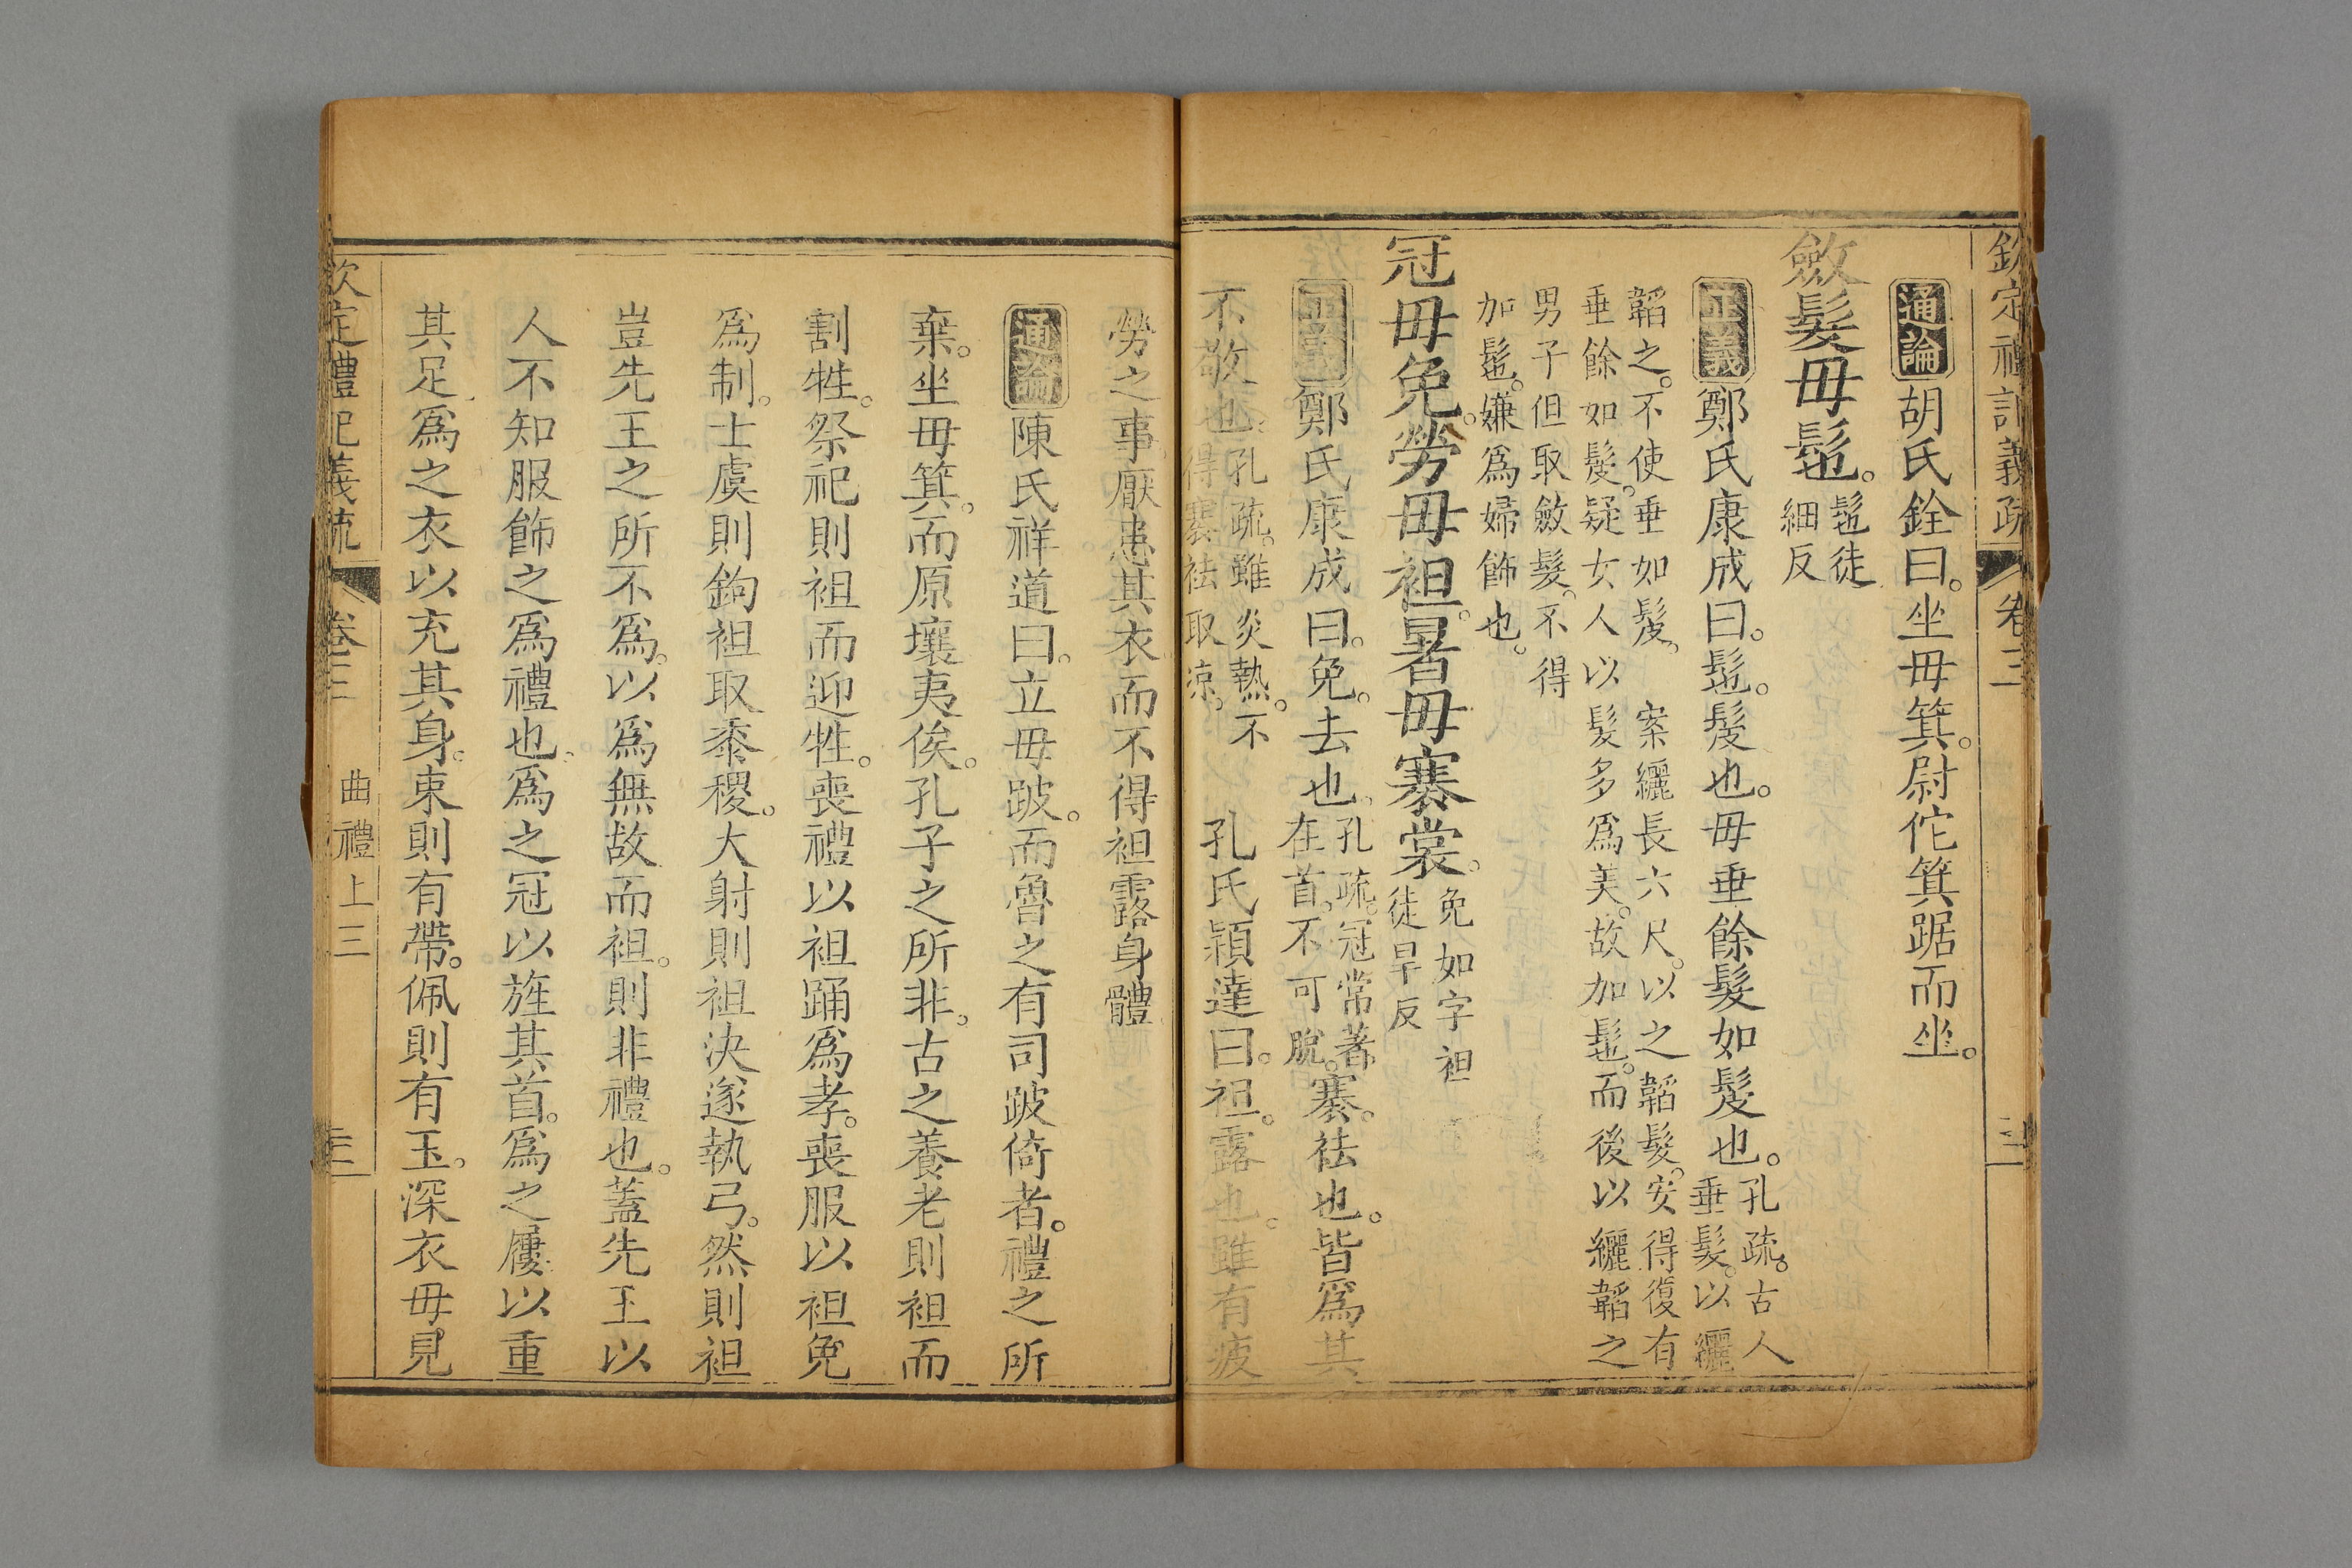 欽定禮記義疏 卷三
通論胡氏銓曰。坐毋箕。尉佗箕踞而坐。
斂髮毋髢。髢徒細反
正義鄭氏康成曰。髢。髲也。毋垂餘髮如髲也。孔疏。古人垂髮。以纚
韜之。不使垂如髲。 案纚長六尺。以之韜髮。安得復有
垂餘如髲。疑女人以髮多爲美。故加髢。而後以纚韜之
男子但取斂髮。不得
加髢。嫌爲婦飾也。
冠毋免。勞毋袒。暑毋褰裳。免如字袒徒旱反
正義鄭氏康成曰。免。去也。孔疏。冠常著在首。不可脫。褰。袪也。皆爲其
不敬也。孔疏。雖炎熱。不得褰袪取涼。 孔氏穎達曰。袒。露也。雖有疲
勞之事。厭患其衣而不得袒露身體
通論陳氏祥道曰。立毋跛。而魯之有司跛倚者。禮之所
棄。坐毋箕。而原壤夷俟。孔子之所非。古之養老則袒而
割牲。祭祀則袒而迎牲。喪禮以袒踊爲孝。喪服以袒免
爲制。士虞則鉤袒取黍稷。大射則袒決遂執弓。然則袒
豈先王之所不爲。以爲無故而袒。則非禮也。蓋先王以
人不知服飾之爲禮也。爲之冠以旌其首。爲之屨以重
其足。爲之衣以充其身。束則有帶。佩則有玉。深衣毋見
欽定禮記義疏 卷三 曲禮上三